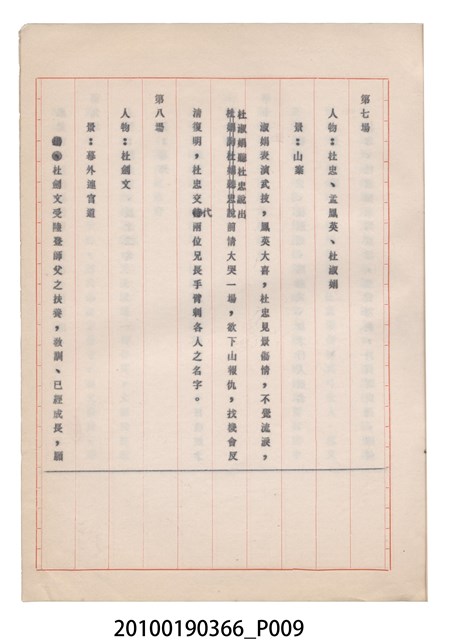 第七場
人物：杜忠、孟鳳英、杜淑娟
景：山寨
淑娟表演武技，鳳英大喜，杜忠見景傷情，不覺流淚，
杜淑娟聽杜忠說出
前情大哭一場，欲下山報仇，找機會反
清復明，杜忠交代兩位兄長手臂刺各人之名字。
第八場
人物：杜劍文
景：幕外連官道
杜劍文受陸後師父之扶養，教訓、已經成長，願
20100190366_P009